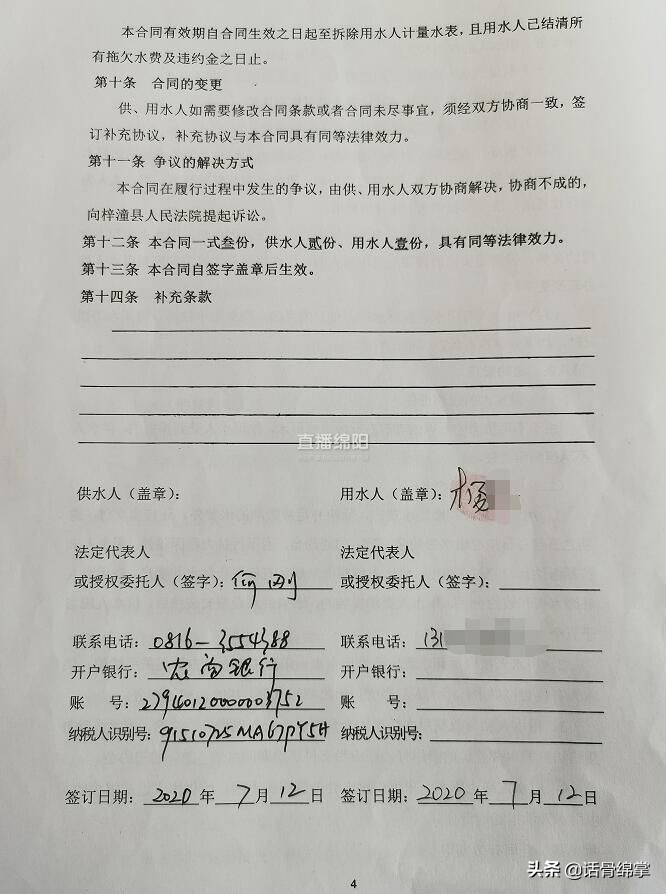 本合同有效期自合同生效之日起至拆除用水人计量水表，且用水人已结清所
有拖欠水费及违约金之日止。
第十条 合同的变更
供、用水人如需要修改合同条款或者合同未尽事宜，须经双方协商一致，签
订补充协议，补充协议与本合同具有同等法律效力。
第十一条 争议的解决方式
本合同在履行过程中发生的争议，由供、用水人双方协商解决，协商不成的，
向梓潼县人民法院提起诉讼。
第十二条 本合同一式叁份，供水人贰份、用水人壹份，具有同等法律效力。
第十三条 本合同自签字盖章后生效。
第十四条 补充条款
直播绵阳
供水人（盖章）： 用水人（盖章）：杨
法定代表人 法定代表人
或授权委托人（签字）： 或授权委托人（签字）：
联系电话：0816-3554388 联系电话：131
开户银行：农商银行 开户银行：
账 号： 账 号：
纳税人识别号：91510725MA67PY5H 纳税人识别号：
签订日期：2020年7月12日 签订日期：2020年7月12日
4
头条 @话骨绵掌